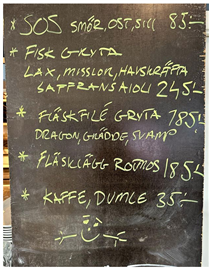 * SOS SMÖR, OST, SILL 85:-
* FISK GRYTA
LAX, MUSSLOR, HAVSKRÄFTA
SAFFRANSAIOLI 245:-
* FLÄSKFILÉ GRYTA 185:-
DRAGON, GRÄDDE, SVAMP
* FLÄSKLÄGG ROTMOS 185:-
* KAFFE, DUMLE 35:-